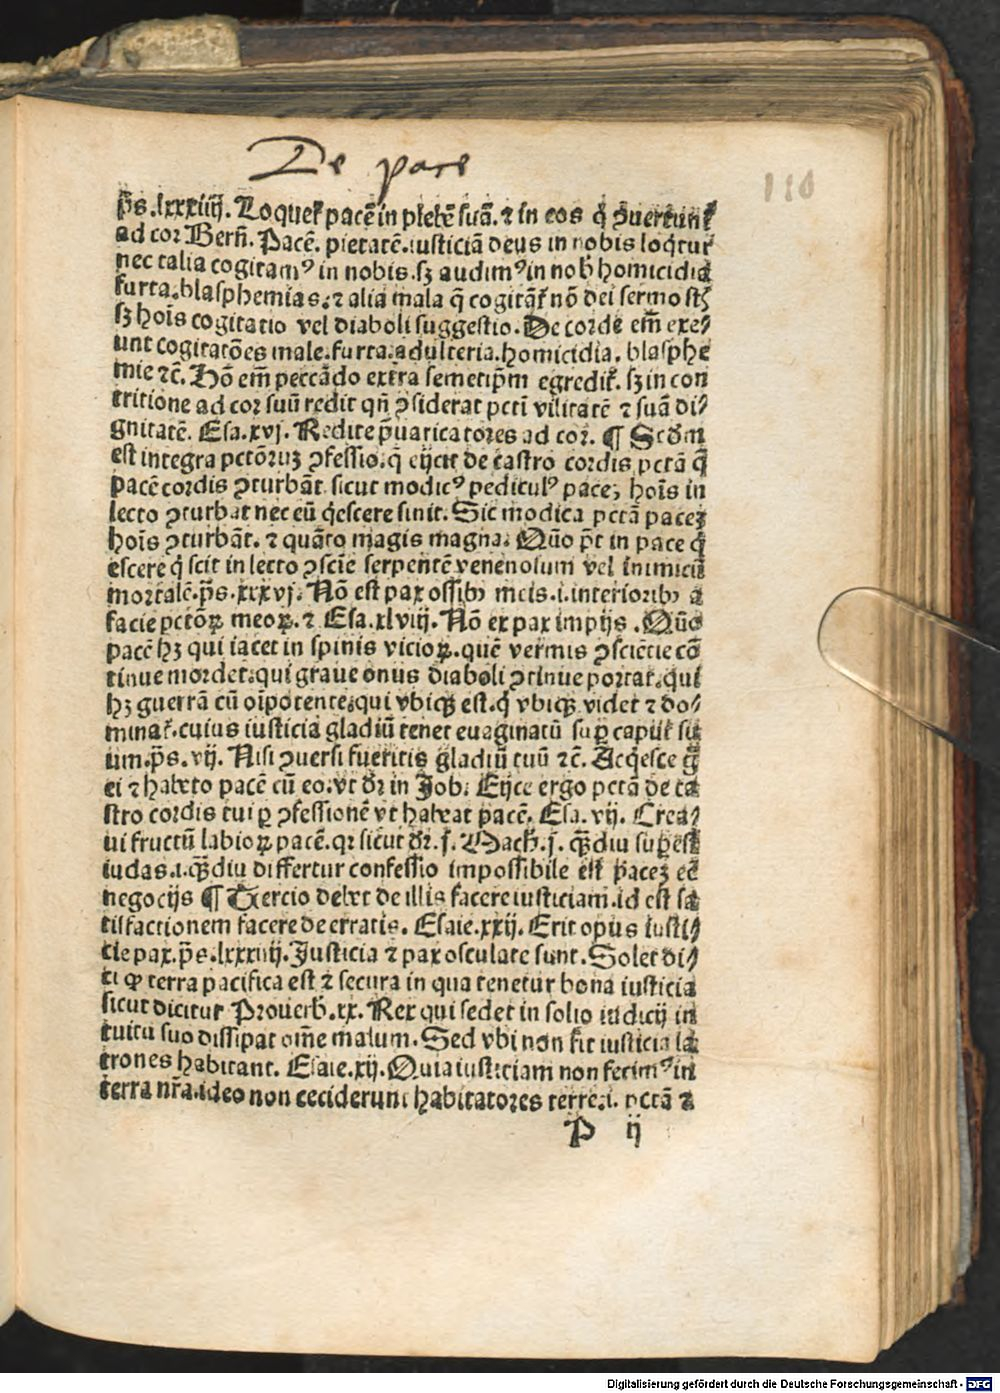 De pace
110
p̄s.lxxxiiij. Loquet᷑ pacē in plebē suā. ⁊ in eos q̇ ꝯuertunt᷑
ad cor Berñ. Pacē. pietatē. iusticiā deus in nobis loq̇tur
nec talia cogitamꝰ in nobis. sꝫ audimꝰ in nob̄ homicidia
furta. blasphemias. ⁊ alia mala q̄ cogitāt᷑ nō dei sermo st̄
sꝫ hoīs cogitatio vel diaboli suggestio. De corde em̄ exe⸗
unt cogitatōes male. furta. adulteria. homicidia. blasphe
mie ⁊c̄. Hō em̄ peccādo extra semetip̄m egredit᷑. sꝫ in con
tritione ad cor suū redit qn̄ ꝯsiderat pcti vilitatē ⁊ suā di⸗
gnitatē. Esa.xvj. Redite p̄uaricatores ad cor. ¶ Scd̄m
est integra pctōruꝫ ꝯfessio. q̄ eijcit de castro cordis pctā q̄
pacē cordis ꝯturbāt. sicut modicꝰ pediculꝰ paceꝫ hoīs in
lecto ꝯturbat nec eū q̇escere sinit. Sic modica pctā paceꝫ
hoīs ꝯturbāt. ⁊ quāto magis magna. Quō pōt in pace q̇
escere q̇ scit in lecto ꝯsciē serpentē venenosum vel inimicū
mortalē. p̄s.xxxvj. Nō est pax ossibꝫ meis .i. interioribꝫ a
facie pctōꝝ meoꝝ. ⁊ Esa.xlviij. Nō ex pax impijs. Quō
pacē hꝫ qui iacet in spinis vicioꝝ. quē vermis ꝯsciētie cō
tinue mordet. qui graue onus diaboli ꝯtinue portat. qui
hꝫ guerrā cū oīpotente. qui vbiqꝫ est. q̇ vbiqꝫ videt ⁊ do⸗
minat᷑. cuius iusticia gladiū tenet euaginatū suꝑ caput su
um. p̄s.vij. Nisi ꝯuersi fueritis gladiū tuū ⁊c̄. Acq̇esce g̊
ei ⁊ habeto pacē cū eo. vt dr̄ in Job. Eijce ergo pctā de ca
stro cordis tui ꝑ ꝯfessionē vt habeat pacē. Esa.vij. Crea⸗
ui fructū labioꝝ pacē. qꝛ sicut dr̄ .j. Mach̄.j. qꝫdiu suꝑest
iudas .i. qꝫdiu differtur confessio impossibile est paceꝫ eē
negocijs ¶ Tercio debet de illis facere iusticiam. id est sa
tisfactionem facere de erratis. Esaie.xxij. Erit opus iusti⸗
cie pax. p̄s.lxxxiiij. Justicia ⁊ pax osculate sunt. Solet di⸗
ci ꝙ terra pacifica est ⁊ secura in qua tenetur bona iusticia
sicut dicitur Prouerb̄.xx. Rex qui sedet in solio iudicij in
tuitu suo dissipat om̄e malum. Sed vbi non fit iusticia la
trones habitant. Esaie.xij. Quia iusticiam non fecimꝰ in
terra nr̄a. ideo non ceciderunt habitatores terre .i. pctā ⁊
P ij
Digitalisierung gefördert durch die Deutsche Forschungsgemeinschaft - DFG